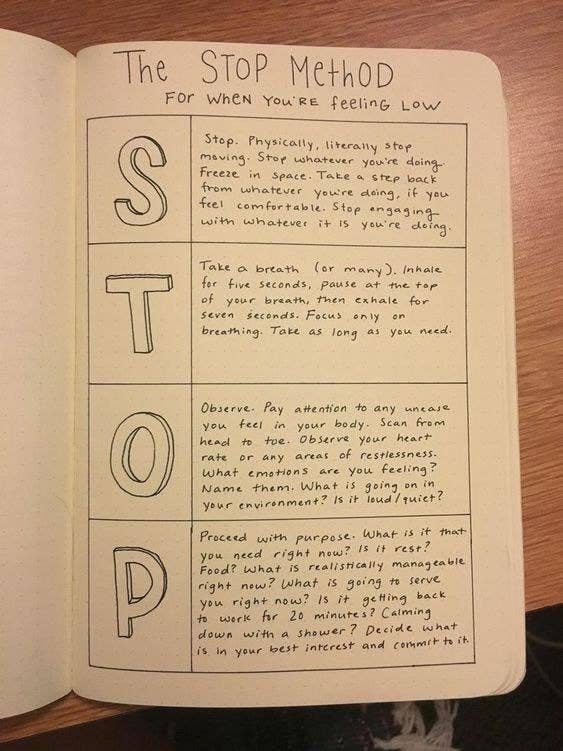 The STOP MethOD
FOR WHEN YOU'RE feeling LOW
S
Stop. Physically, literally stop
moving. Stop whatever you're doing.
Freeze in space. Take a step back
from whatever you're doing, if you
feel comfortable. Stop engaging
with whatever it is you're doing.
T
Take a breath (or many). Inhale
for five seconds, pause at the top
of your breath, then exhale for
seven seconds. Focus only on
breathing. Take as long as you need.
O
Observe. Pay attention to any unease
you feel in your body. Scan from
head to toe. Observe your heart
rate or any areas of restlessness.
What emotions are you feeling?
Name them. What is going on in
your environment? Is it loud/quiet?
P
Proceed with purpose. What is it that
you need right now? Is it rest?
Food? What is realistically manageable
right now? What is going to serve
you right now? Is it getting back
to work for 20 minutes? Calming
down with a shower? Decide what
is in your best interest and commit to it.